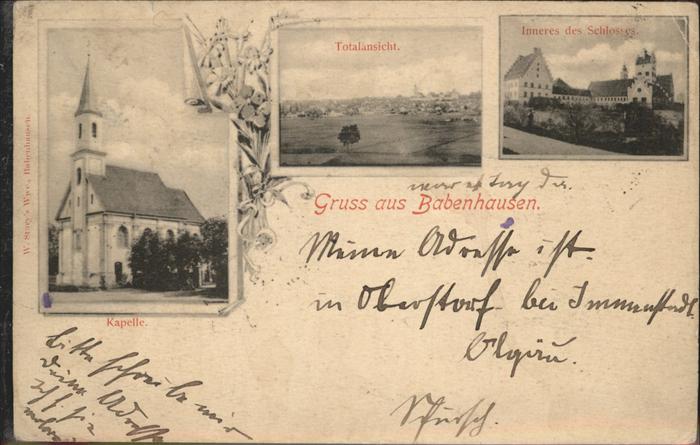 Totalansicht.
Inneres des Schlosses.
W. Stary's Wwe., Babenhausen.
Kapelle.
Gruss aus Babenhausen.
Meine Adresse ist
in Oberstorf bei Immenstadt
Olgäu.
bitte schreibe mir
deine Adresse